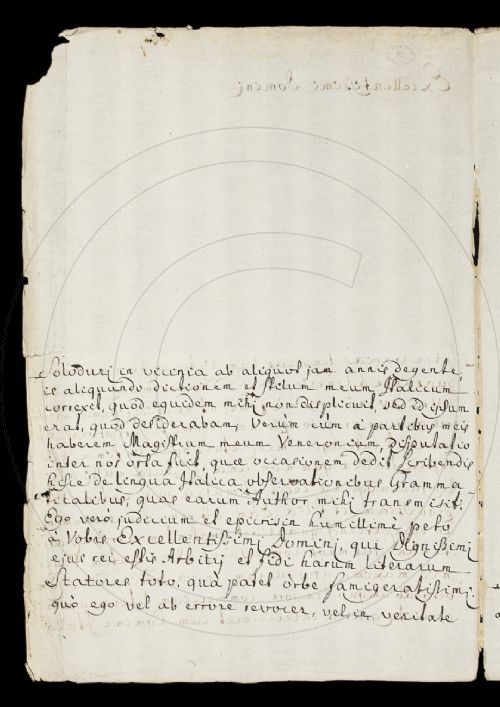 Excellentissimi Domini
in vicinia ab aliquot jam annis degente,
is aliquando dictionem et stilum meum Italicum
correxit, quod equidem mihi non displicuit, sed id ipsum
erat, quod desiderabam, Verùm cùm à partibus meis
haberem Magistrum meum Veneroneum Disputatio
inter nos orta fuit, quæ occasionem dedit scribendis
hisce de lingua Italica observationibus Gramma-
ticalibus, quas earum Author mihi transmisit.
Ego verò judicium et epicrisin humillimè peto
à Vobis Excellentissimi Domini, qui Dignissimi
ejus rei estis Arbitri et fidi harum literarum
Statores toto, quà patet orbe famigeratissimi,
quò ego vel ab errore revocer, vel in veritate